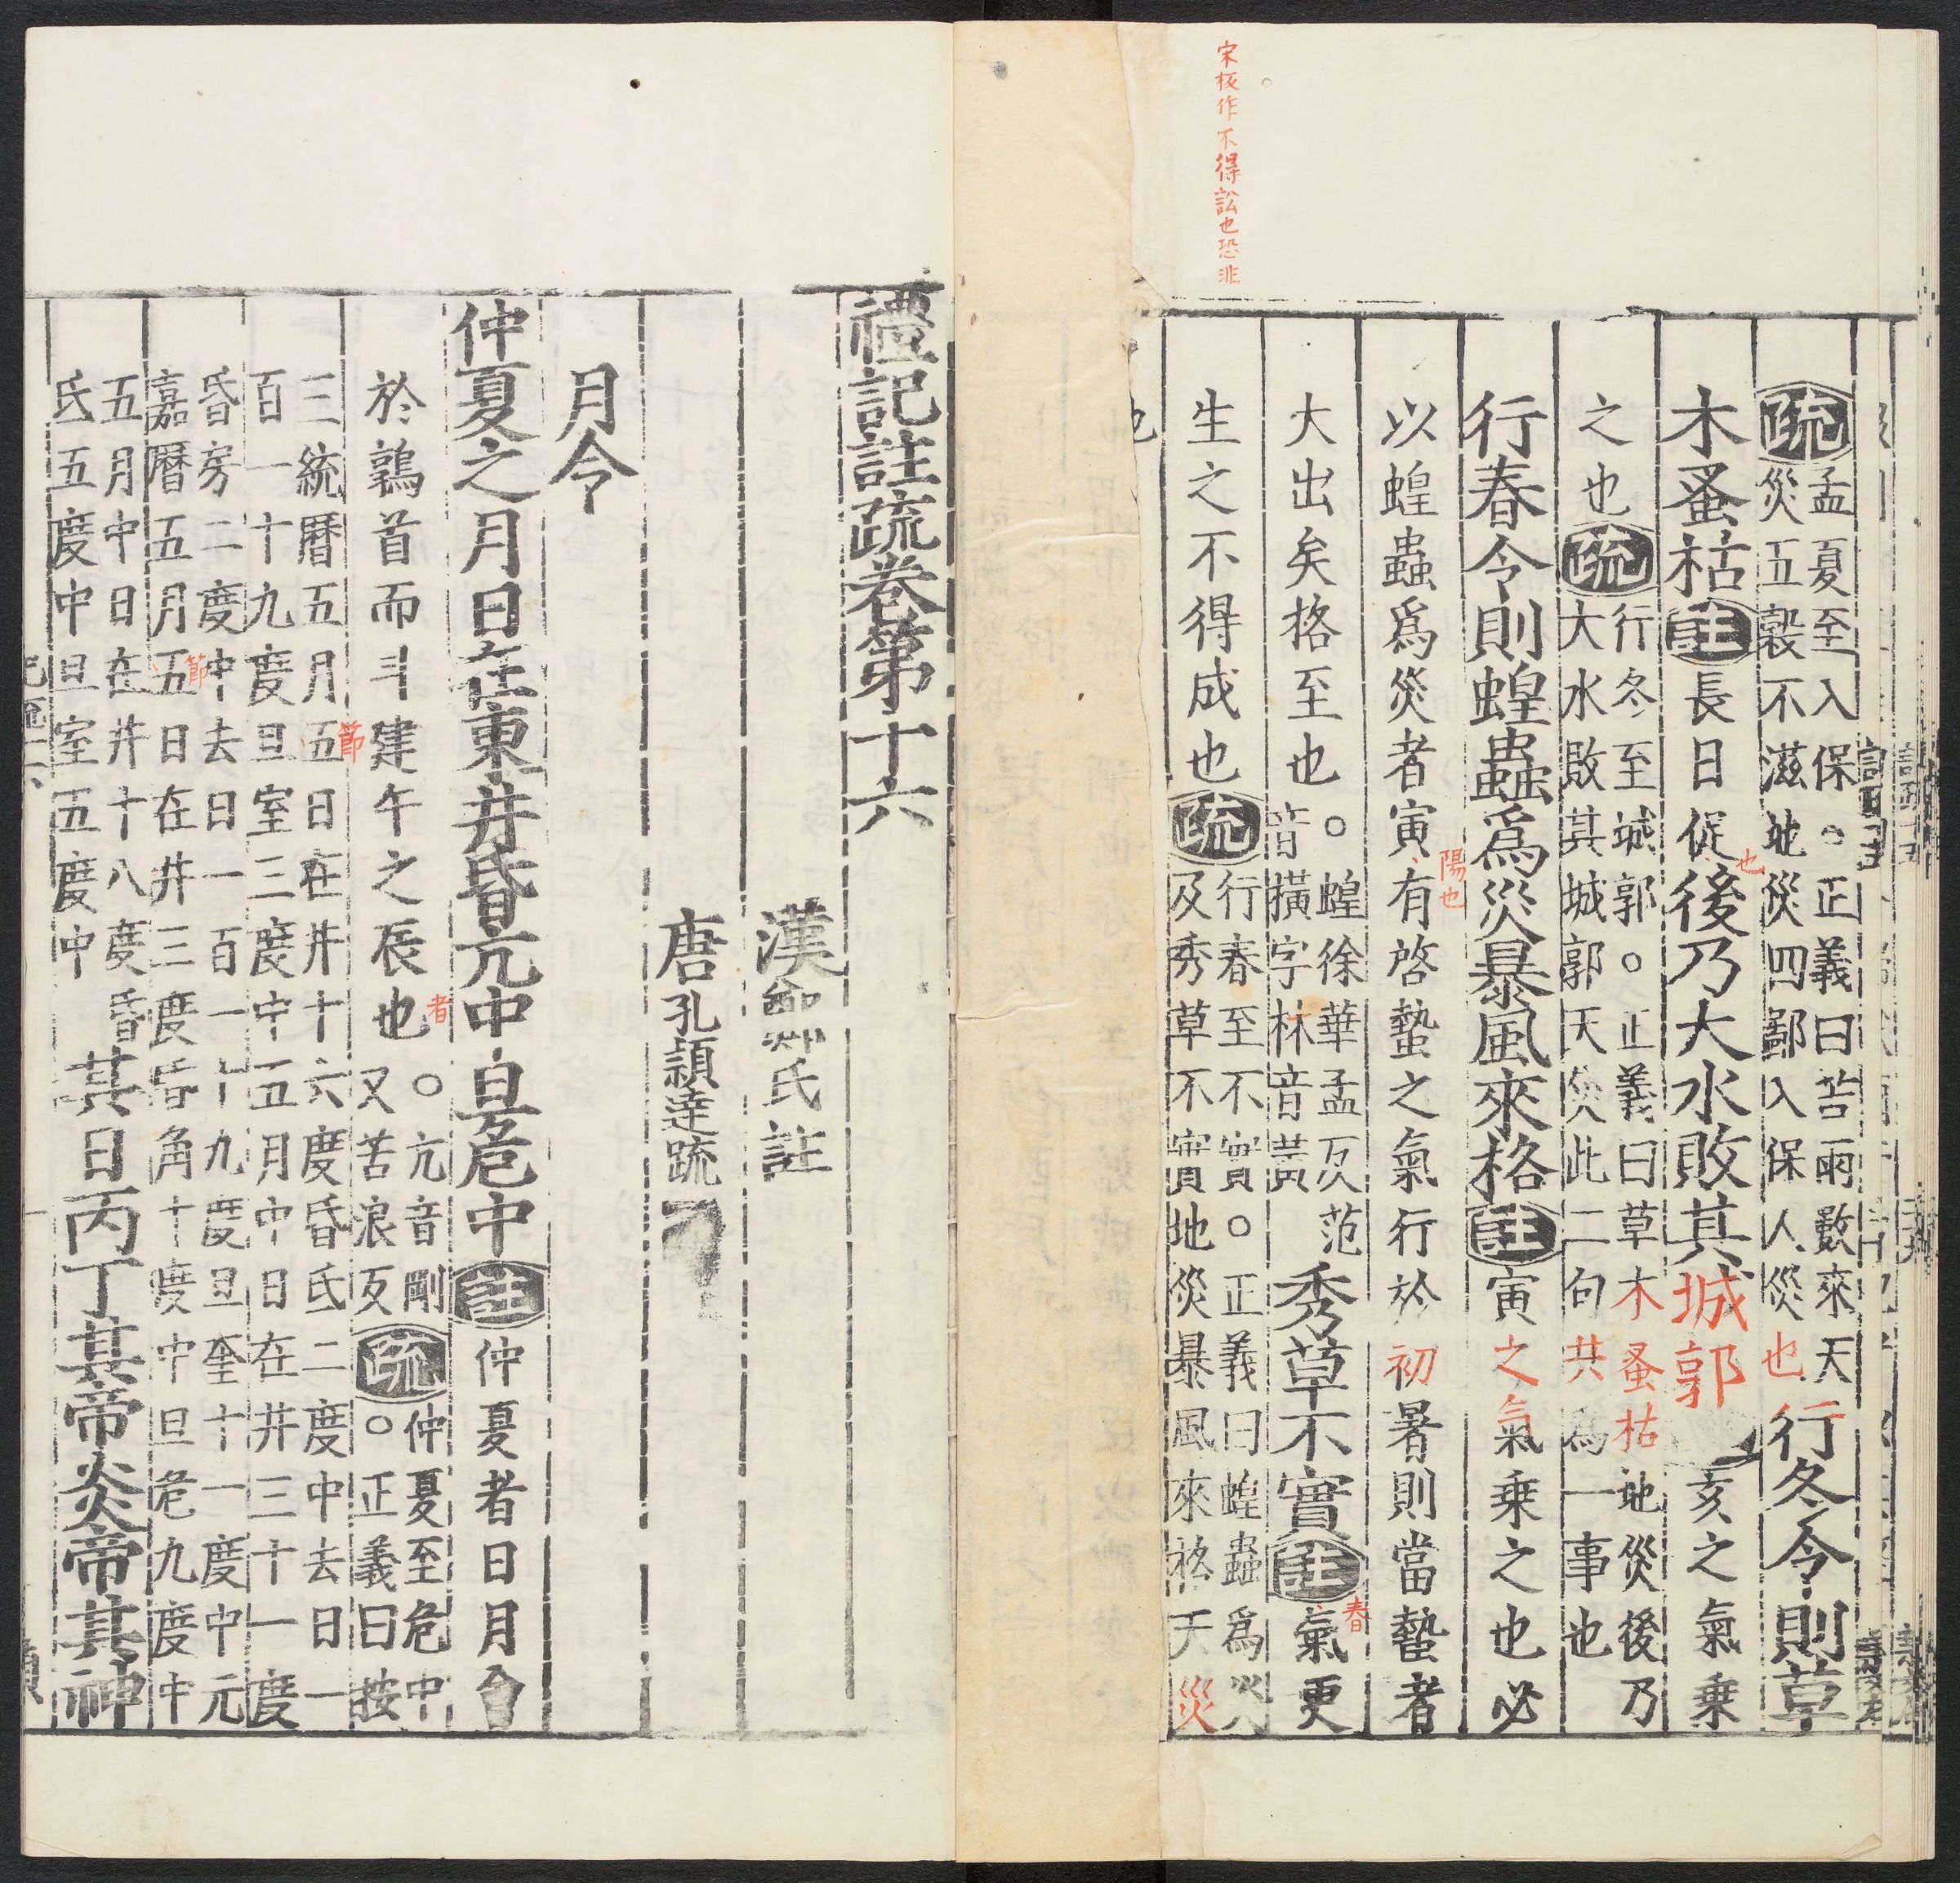 宋板作不得訟也恐非
疏孟夏至入保。正義曰苦雨數來天
災五穀不滋地災四鄙入保人災也行冬令則草
木蚤枯註長日促也後乃大水敗其城郭亥之氣乗
之也疏行冬至城郭。正義曰草木蚤枯地災後乃
大水敗其城郭天災此二句共為一事也
行春令則蝗蟲爲災暴風來格註寅之氣乗之也必
以蝗蟲爲災者寅有陽也啓蟄之氣行於初暑則當蟄者
大出矣格至也。蝗徐華孟反范
音橫字林音黃秀草不實註春氣更
生之不得成也疏行春至不實。正義曰蝗蟲爲災
及秀草不實地災暴風來格天災
也
禮記註疏卷第十六
漢鄭氏註
唐孔穎達疏
月令
仲夏之月日在東井昏亢中旦危中註仲夏者日月會
於鶉首而斗建午之辰也者。亢音剛
又苦浪反疏仲夏至危中
。正義曰按
三統曆五月節五日在井十六度昏氐二度中去日一
百一十九度旦室三度中五月中日在井三十一度
昏房二度中去日一百一十九度旦奎十一度中元
嘉曆五月節五日在井三度昏角十度中旦危九度中
五月中日在井十八度昏
氐五度中旦室五度中其日丙丁其帝炎帝其神